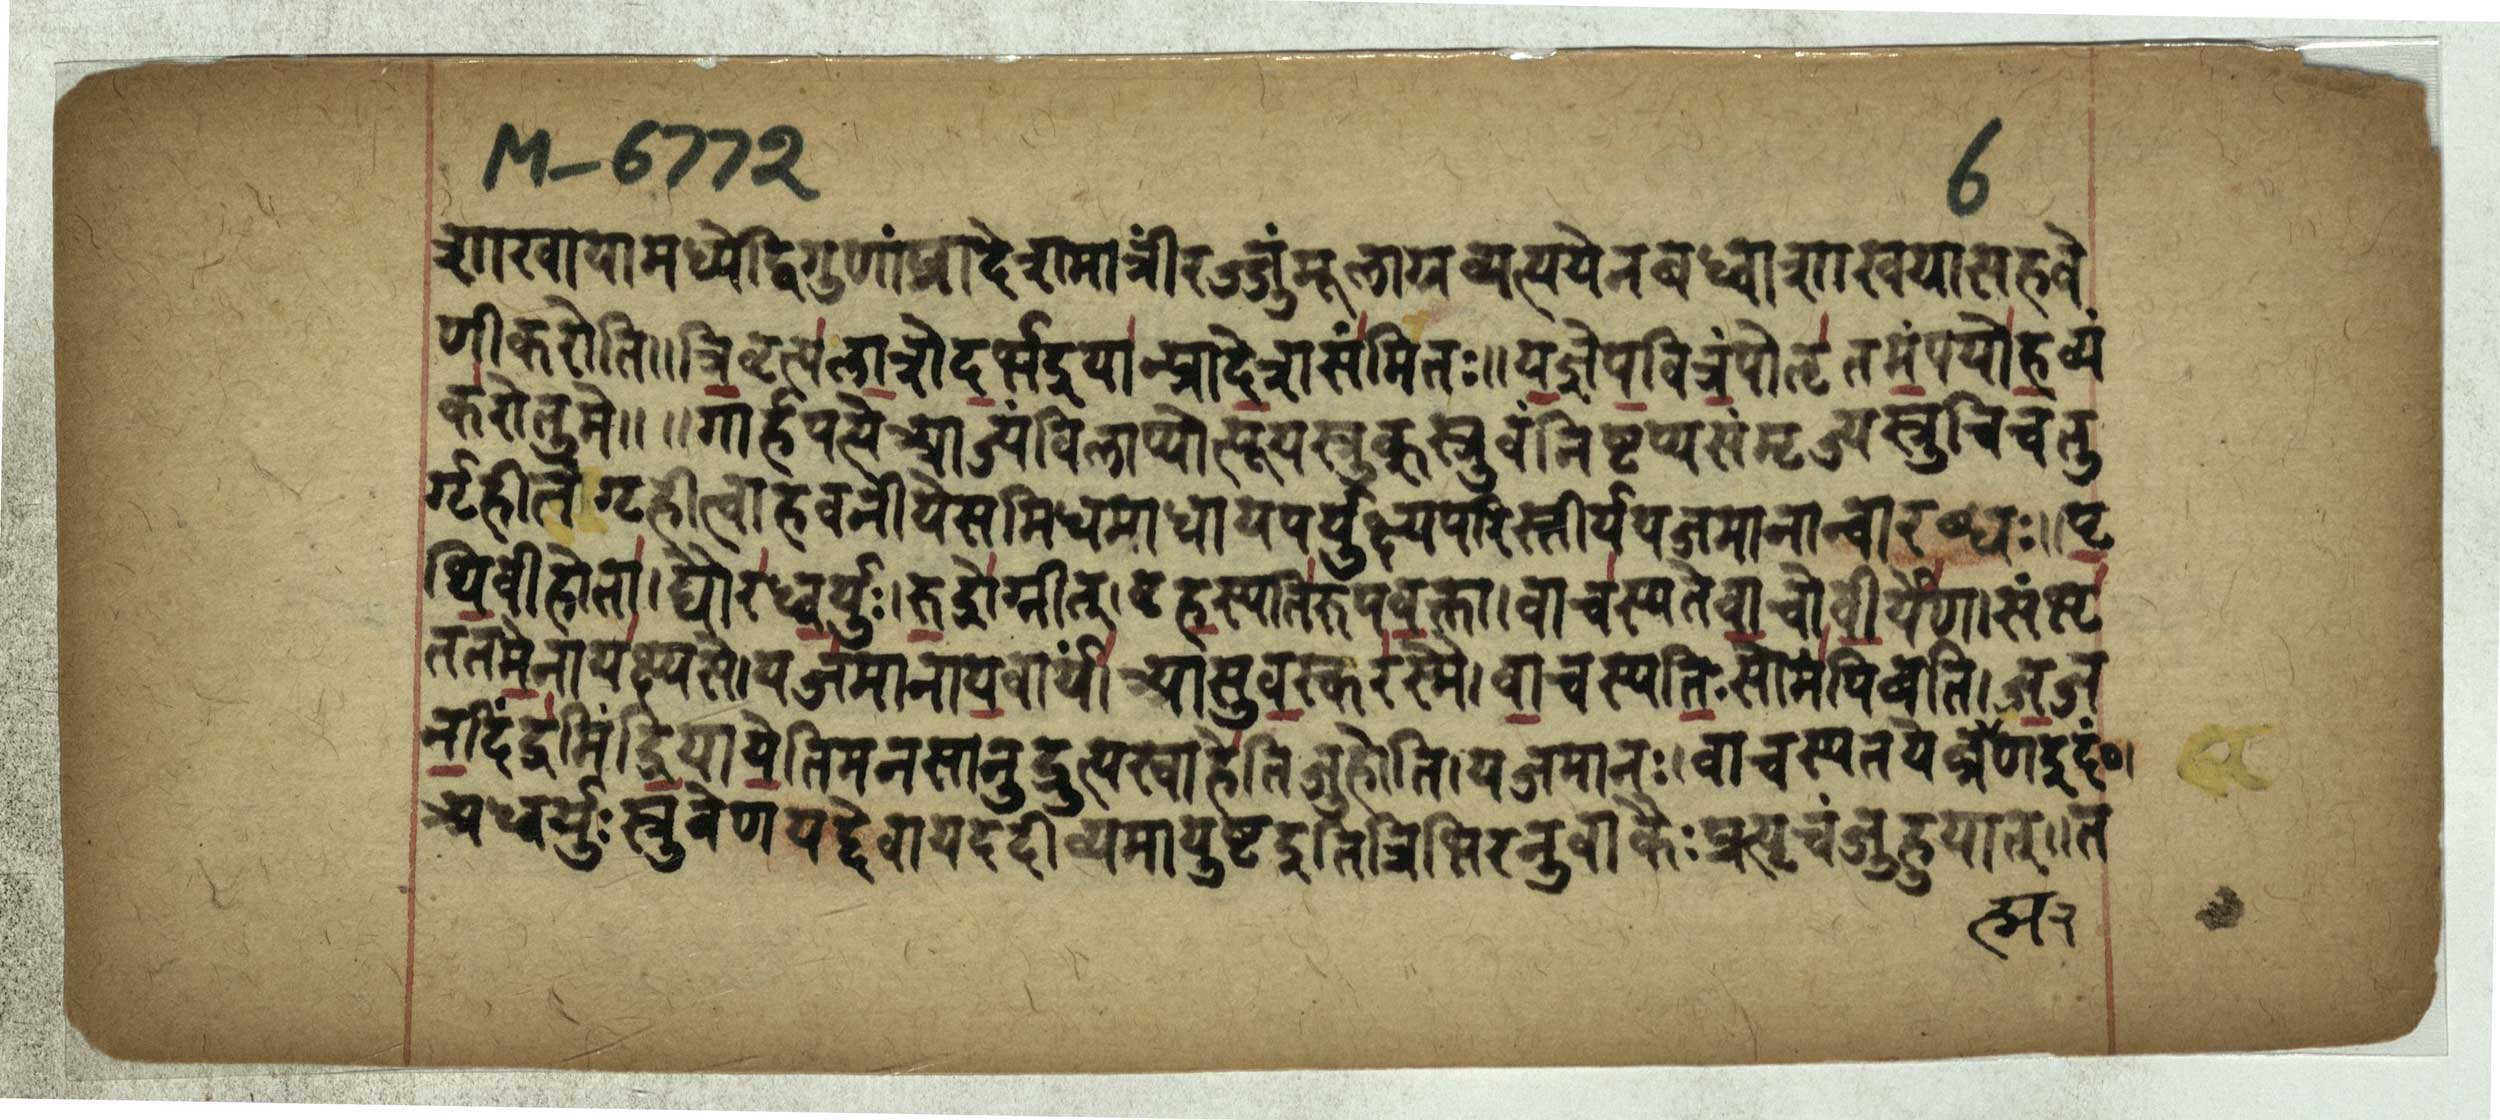 M-6772 6
शाखायामध्येद्विगुणांप्रादेशमात्रींरज्जुंमूलाग्रव्यत्ययेनबध्वाशाखयासहवे
णीकरोति॥त्रिवृत्पलाशेदर्भइयान्प्रादेशसंमितः॥यज्ञेपवित्रंपोतृतमंपयोहव्यं
करोतुमे॥ ॥गार्हपत्येआज्यंविलाप्योत्पूयस्रुक्स्रुवंनिष्टप्यसंमृज्यस्रुचिचतु
र्गृहीतंगृहीत्वाहवनीयेसमिधमाधायपर्युक्ष्यपरिस्तीर्ययजमानान्वारब्धः॥पृ
थिवीहोता।द्यौरध्वर्युः।रुद्रोग्नीत्।बृहस्पतिरुपवक्ता।वाचस्पतेवाचोवीर्येण।संभृ
ततमेनायक्ष्यसे।यजमानायवार्यं।आसुवस्करस्मै।वाचस्पतिःसोमंपिबति।जज
नदिंद्रमिंद्रियायेतिमनसानुद्रुत्यस्वाहेतिजुहोति।यजमानः।वाचस्पतयेब्रह्मणइदं०।
अध्वर्युःस्रुवेणयद्देवायददीव्यमायुष्टइतित्रिभिरनुवाकैःप्रत्यृचंजुहुयात्॥त